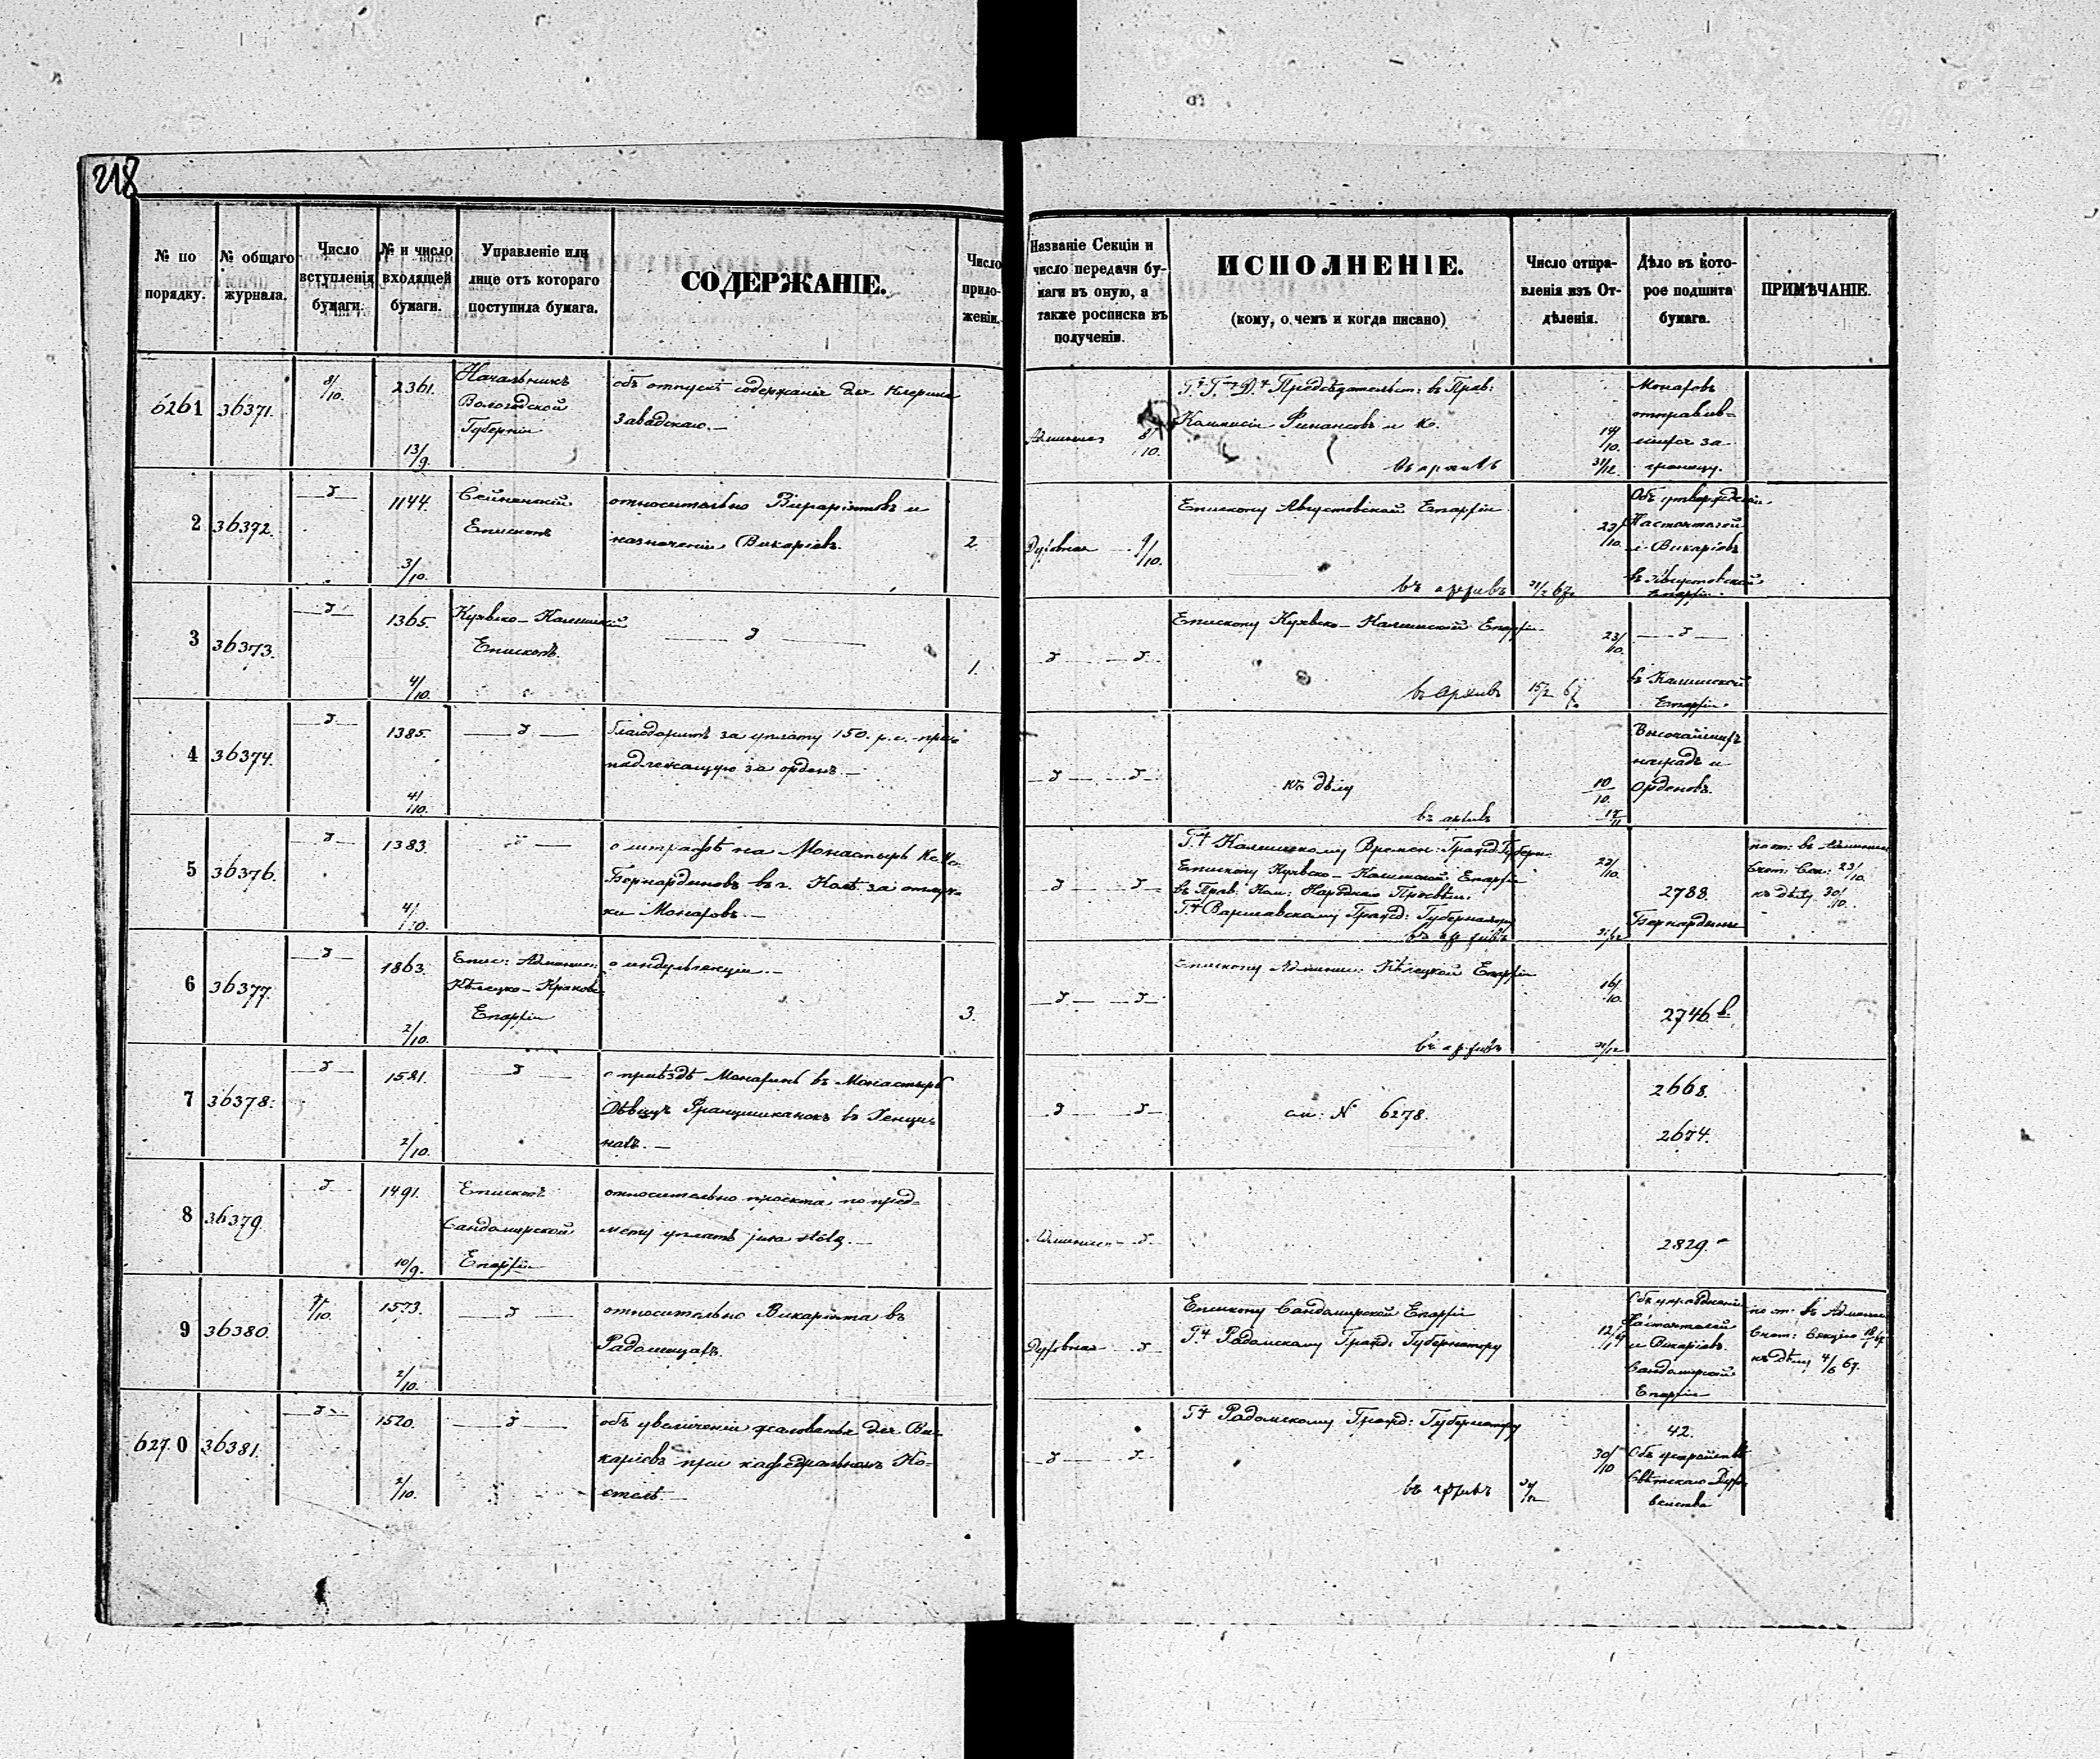 218
№ по порядку.
№ общаго журнала.
Число вступленія бумаги.
№ и число входящей бумаги.
Управленіе или лице отъ котораго поступила бумага.
СОДЕРЖАНІЕ.
Число приложеніи.
Названіе Секціи и число передачи бумаги въ оную, а также росписка въ полученіи.
ИСПОЛНЕНІЕ.
(кому, о чемъ и когда писано)
Число отправленія изъ Отдѣленія.
Дѣло въ которое подшита бумага.
ПРИМѢЧАНІЕ.
6261 36371. 8/10. 2361. 13/9.
Начальникъ
Вологодской
Губерніи
объ отпускѣ содержанія для Клерика
Завадскаго.—
8/10.
Предсѣдательст: въ Прав:
Коммисіи Финансовъ и К.
въ архивъ
14/10.
31/12.
Монаховъ
отправив=
шихся за
границу.
2 36372. 1144. 3/10.
Сейненскій
Епископъ
относительно Викаріятовъ и
назначенія Викаріевъ.
2
Духовная 9/10.
Епископу Августовской Епархіи
въ архивъ
23/10.
Объ утвержденіи
Настоятелей
и Викаріевъ
въ Августовской
Епархіи.
3 36373. 1365. 4/10.
Куявско-Калишскій
Епископъ.
1.
Епископу Куявско-Калишской Епархіи
въ Архивъ
23/10.
15/2 67
въ Калишской
Епархіи.
4 36374. 1385. 4/10.
благодаритъ за уплату 150. р.с. при=
надлежащую за орденъ.—
къ дѣлу
10/10.
Высочайшихъ
наградъ и
Орденовъ.
5 36376. 1383. 4/10.
о штрафѣ на Монастырь
Бернардиновъ въ г. Колѣ за отлуч=
ки Монаховъ.—
Калишскому Времен: Гражд: Губерн:
Епископу Куявско-Калишской Епархіи
въ Прав: Ком: Народнаго Просвѣщ:
Варшавскому Гражд: Губернатору
въ архивъ
23/10.
31/12
2788.
Бернардины
23/10.
къ дѣлу 30/10.
6 36377. 1863. 2/10.
Епис: Админис:
Кѣлецко-Краковс:
Епархіи
о индульгенціи.—
3.
Епископу Админис: Кѣлецкой Епархіи
въ архивъ
16/10.
31/12
2746 в.
7 36378. 1521. 2/10.
о пріѣздѣ Монахинь въ Монастырь
Дѣвицъ Францишканокъ въ Хенци=
нахъ.—
см: № 6278.
2668.
2674.
8 36379. 1491. 10/9.
Епископъ
Сандомирской
Епархіи
относительно проекта, по пред=
мету уплатъ jura stolæ.—
2829.
9 36380. 9/10. 1573. 2/10.
относительно Викаріята въ
Радомицахъ.
Духовная
Епископу Сандомирской Епархіи
Радомскому Гражд: Губернатору
Настоятелей
и Викаріевъ
Сандомирской
Епархіи
къ дѣлу 4/6 67.
6270 36381. 1520. 2/10.
объ увеличеніи жалованья для Ви=
каріевъ при кафедральномъ Ко=
стелѣ.—
Радомскому Гражд: Губернатору
въ архивъ
30/10
42.
Объ устройствѣ
Свѣтскаго Духо=
венства